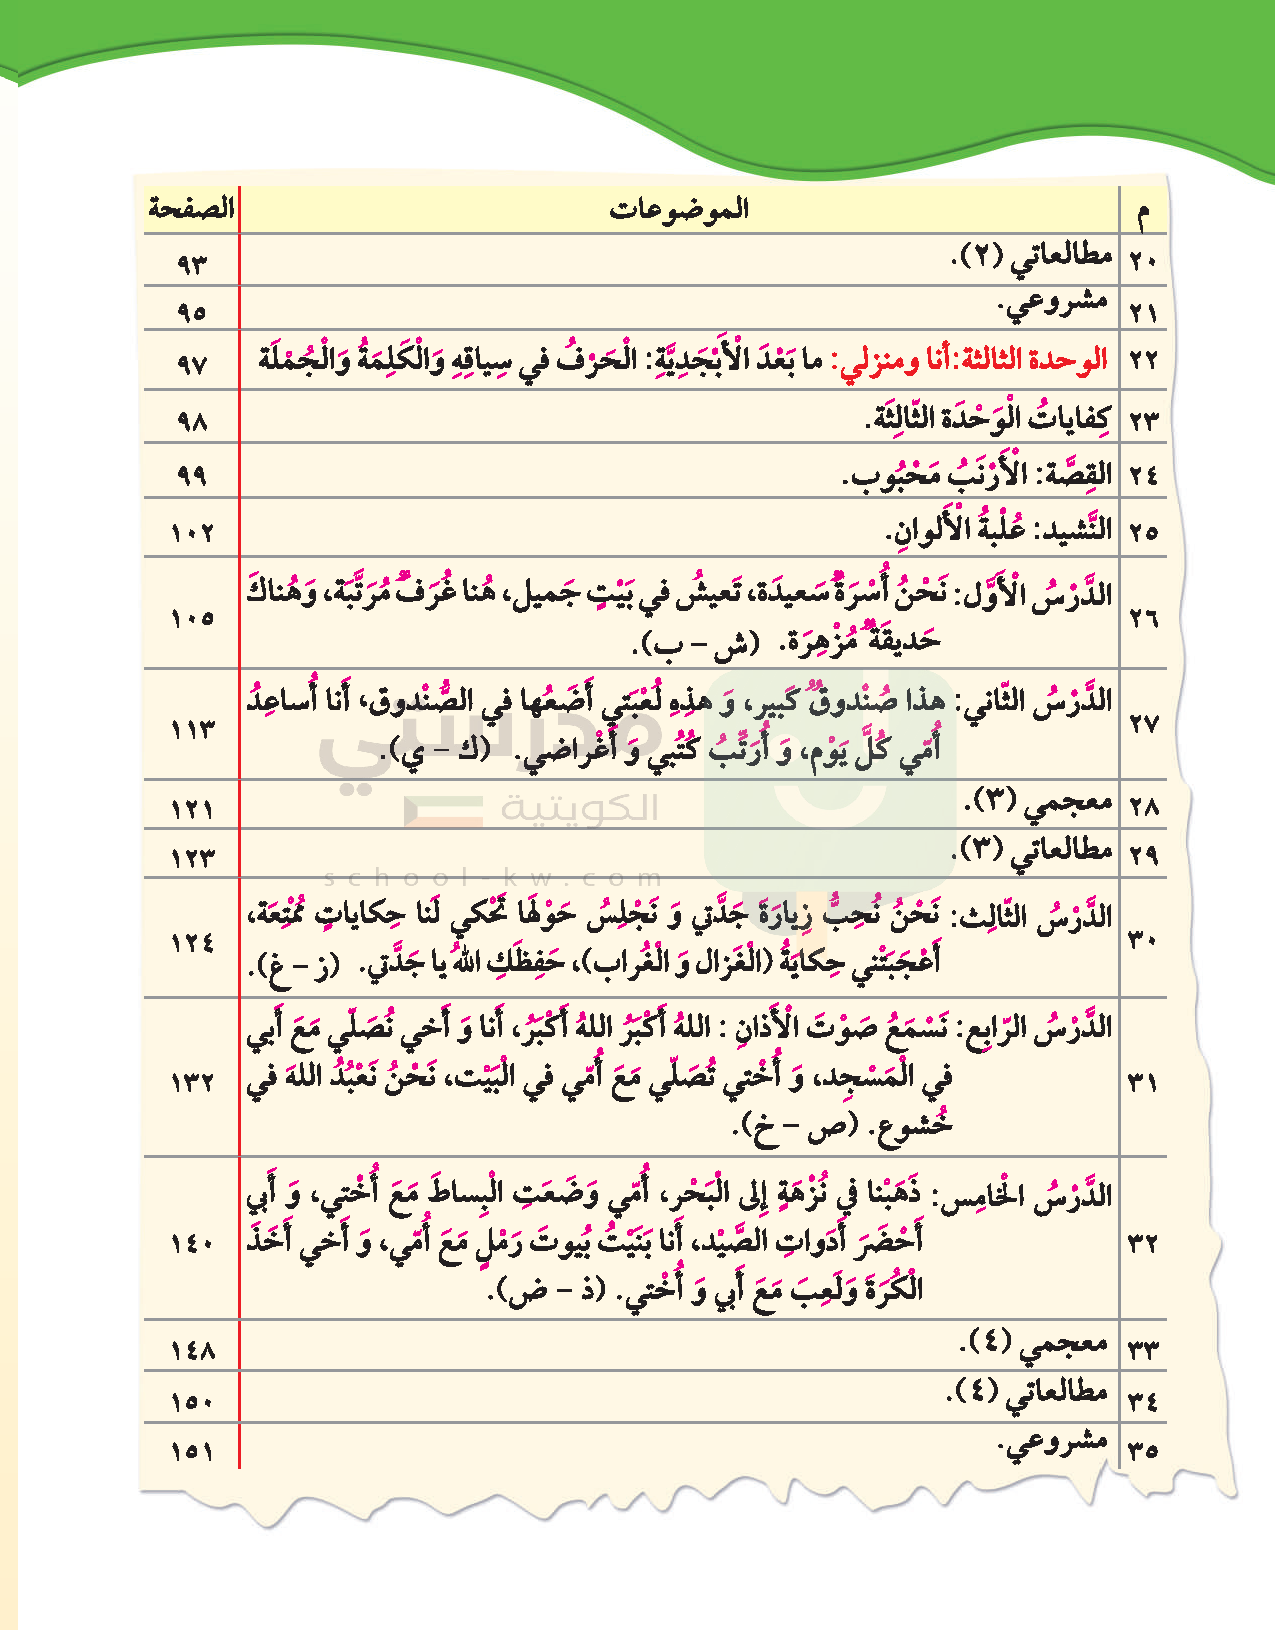 م الموضوعات الصفحة
٢٠ مطالعاتي (٢). ٩٣
٢١ مشروعي. ٩٥
٢٢ الوحدة الثالثة:أنا ومنزلي: ما بَعْدَ الْأَبْجَدِيَّةِ: الْحَرْفُ في سِياقِهِ وَالْكَلِمَةُ وَالْجُمْلَة ٩٧
٢٣ كِفاياتُ الْوَحْدَة الثّالِثَة. ٩٨
٢٤ القِصَّة: الْأَرْنَبُ مَحْبُوب. ٩٩
٢٥ النَّشيد: عُلْبةُ الْأَلوانِ. ١٠٢
٢٦ الدَّرْسُ الْأَوَّل: نَحْنُ أُسْرَةٌ سَعيدَة، تَعيشُ في بَيْتٍ جَميل، هُنا غُرَفٌ مُرَتَّبَة، وَهُناكَ ١٠٥
حَديقَةٌ مُزْهِرَة. (ش – ب).
٢٧ الدَّرْسُ الثّاني: هذا صُنْدوقٌ كَبير، وَ هذِهِ لُعْبَتي أَضَعُها في الصُّنْدوق، أَنا أُساعِدُ ١١٣
أُمّي كُلَّ يَوْم، وَ أُرَتِّبُ كُتُبي وَ أَغْراضي. (ك – ي).
مدرستي
الكويتية
٢٨ معجمي (٣). ١٢١
٢٩ مطالعاتي (٣). ١٢٣
school-kw.com
٣٠ الدَّرْسُ الثّالِث: نَحْنُ نُحِبُّ زِيارَةَ جَدَّتي وَ نَجْلِسُ حَوْلَها تَحْكي لَنا حِكاياتٍ مُمْتِعَة، ١٢٤
أَعْجَبَتْني حِكايَةُ (الْغَزال وَ الْغُراب)، حَفِظَكِ اللهُ يا جَدَّتي. (ز – غ).
٣١ الدَّرْسُ الرّابِع: نَسْمَعُ صَوْتَ الْأَذانِ : اللهُ أَكْبَرُ اللهُ أَكْبَرُ، أَنا وَ أَخي نُصَلّي مَعَ أَبي ١٣٢
في الْمَسْجِد، وَ أُخْتي تُصَلّي مَعَ أُمّي في الْبَيْت، نَحْنُ نَعْبُدُ اللهَ في
خُشوع. (ص – خ).
٣٢ الدَّرْسُ الْخامِس: ذَهَبْنا في نُزْهَةٍ إِلى الْبَحْر، أُمّي وَضَعَتِ الْبِساطَ مَعَ أُخْتي، وَ أَبي ١٤٠
أَحْضَرَ أَدَواتِ الصَّيْد، أَنا بَنَيْتُ بُيوتَ رَمْلٍ مَعَ أُمّي، وَ أَخي أَخَذَ
الْكُرَةَ وَلَعِبَ مَعَ أَبي وَ أُخْتي. (ذ – ض).
٣٣ معجمي (٤). ١٤٨
٣٤ مطالعاتي (٤). ١٥٠
٣٥ مشروعي. ١٥١